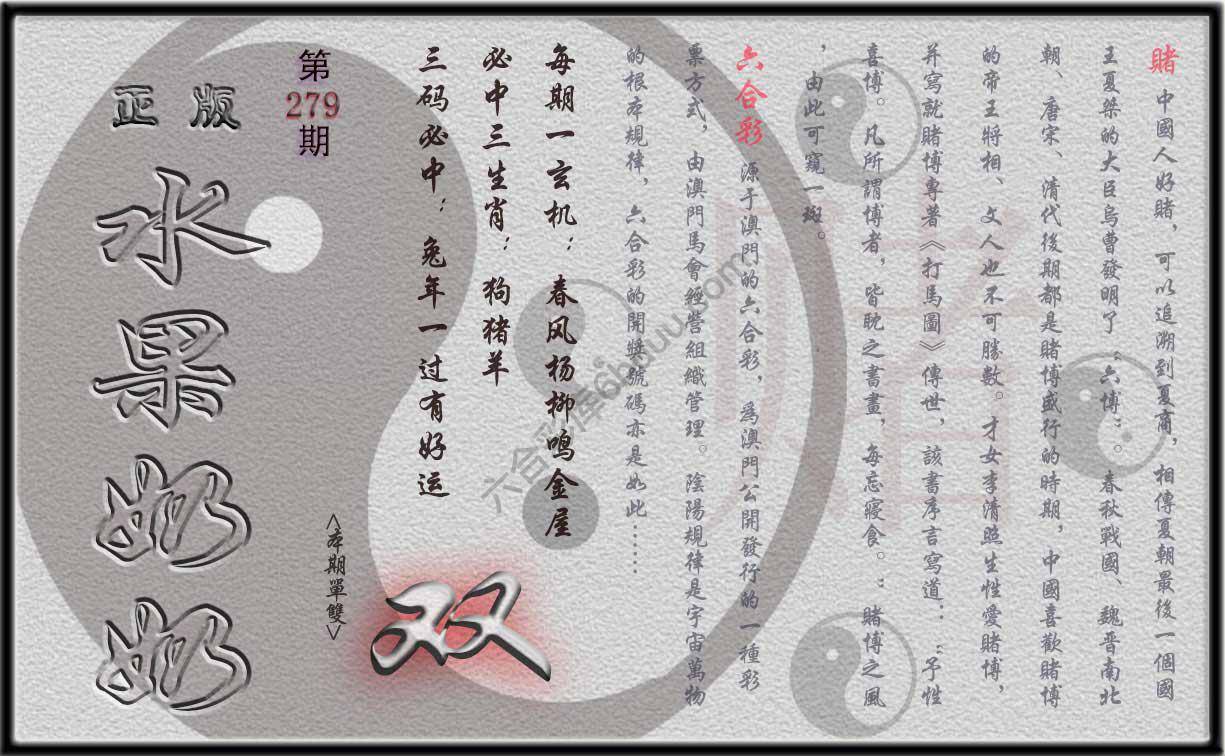 賭 中國人好賭，可以追溯到夏商，相傳夏朝最後一個國
王夏桀的大臣烏曹發明了“六博”。春秋戰國、魏晋南北
朝、唐宋、清代後期都是賭博盛行的時期，中國喜歡賭博
的帝王將相、文人也不可勝數。才女李清照生性愛賭博，
并寫就賭博專著《打馬圖》傳世，該書序言寫道：“予性
喜博。凡所謂博者，皆耽之書畫，每忘寝食。”賭博之風
，由此可窺一斑。
六合彩 源于澳門的六合彩，爲澳門公開發行的一種彩
票方式，由澳門馬會經營組織管理。陰陽規律是宇宙萬物
的根本規律，六合彩的開獎號碼亦是如此……
每期一玄机：春风杨柳鸣金屋
必中三生肖：狗猪羊
三码必中：兔年一过有好运
第279期
正版
水果奶奶
<本期單雙>
双
賭
六合彩库6hduu.com